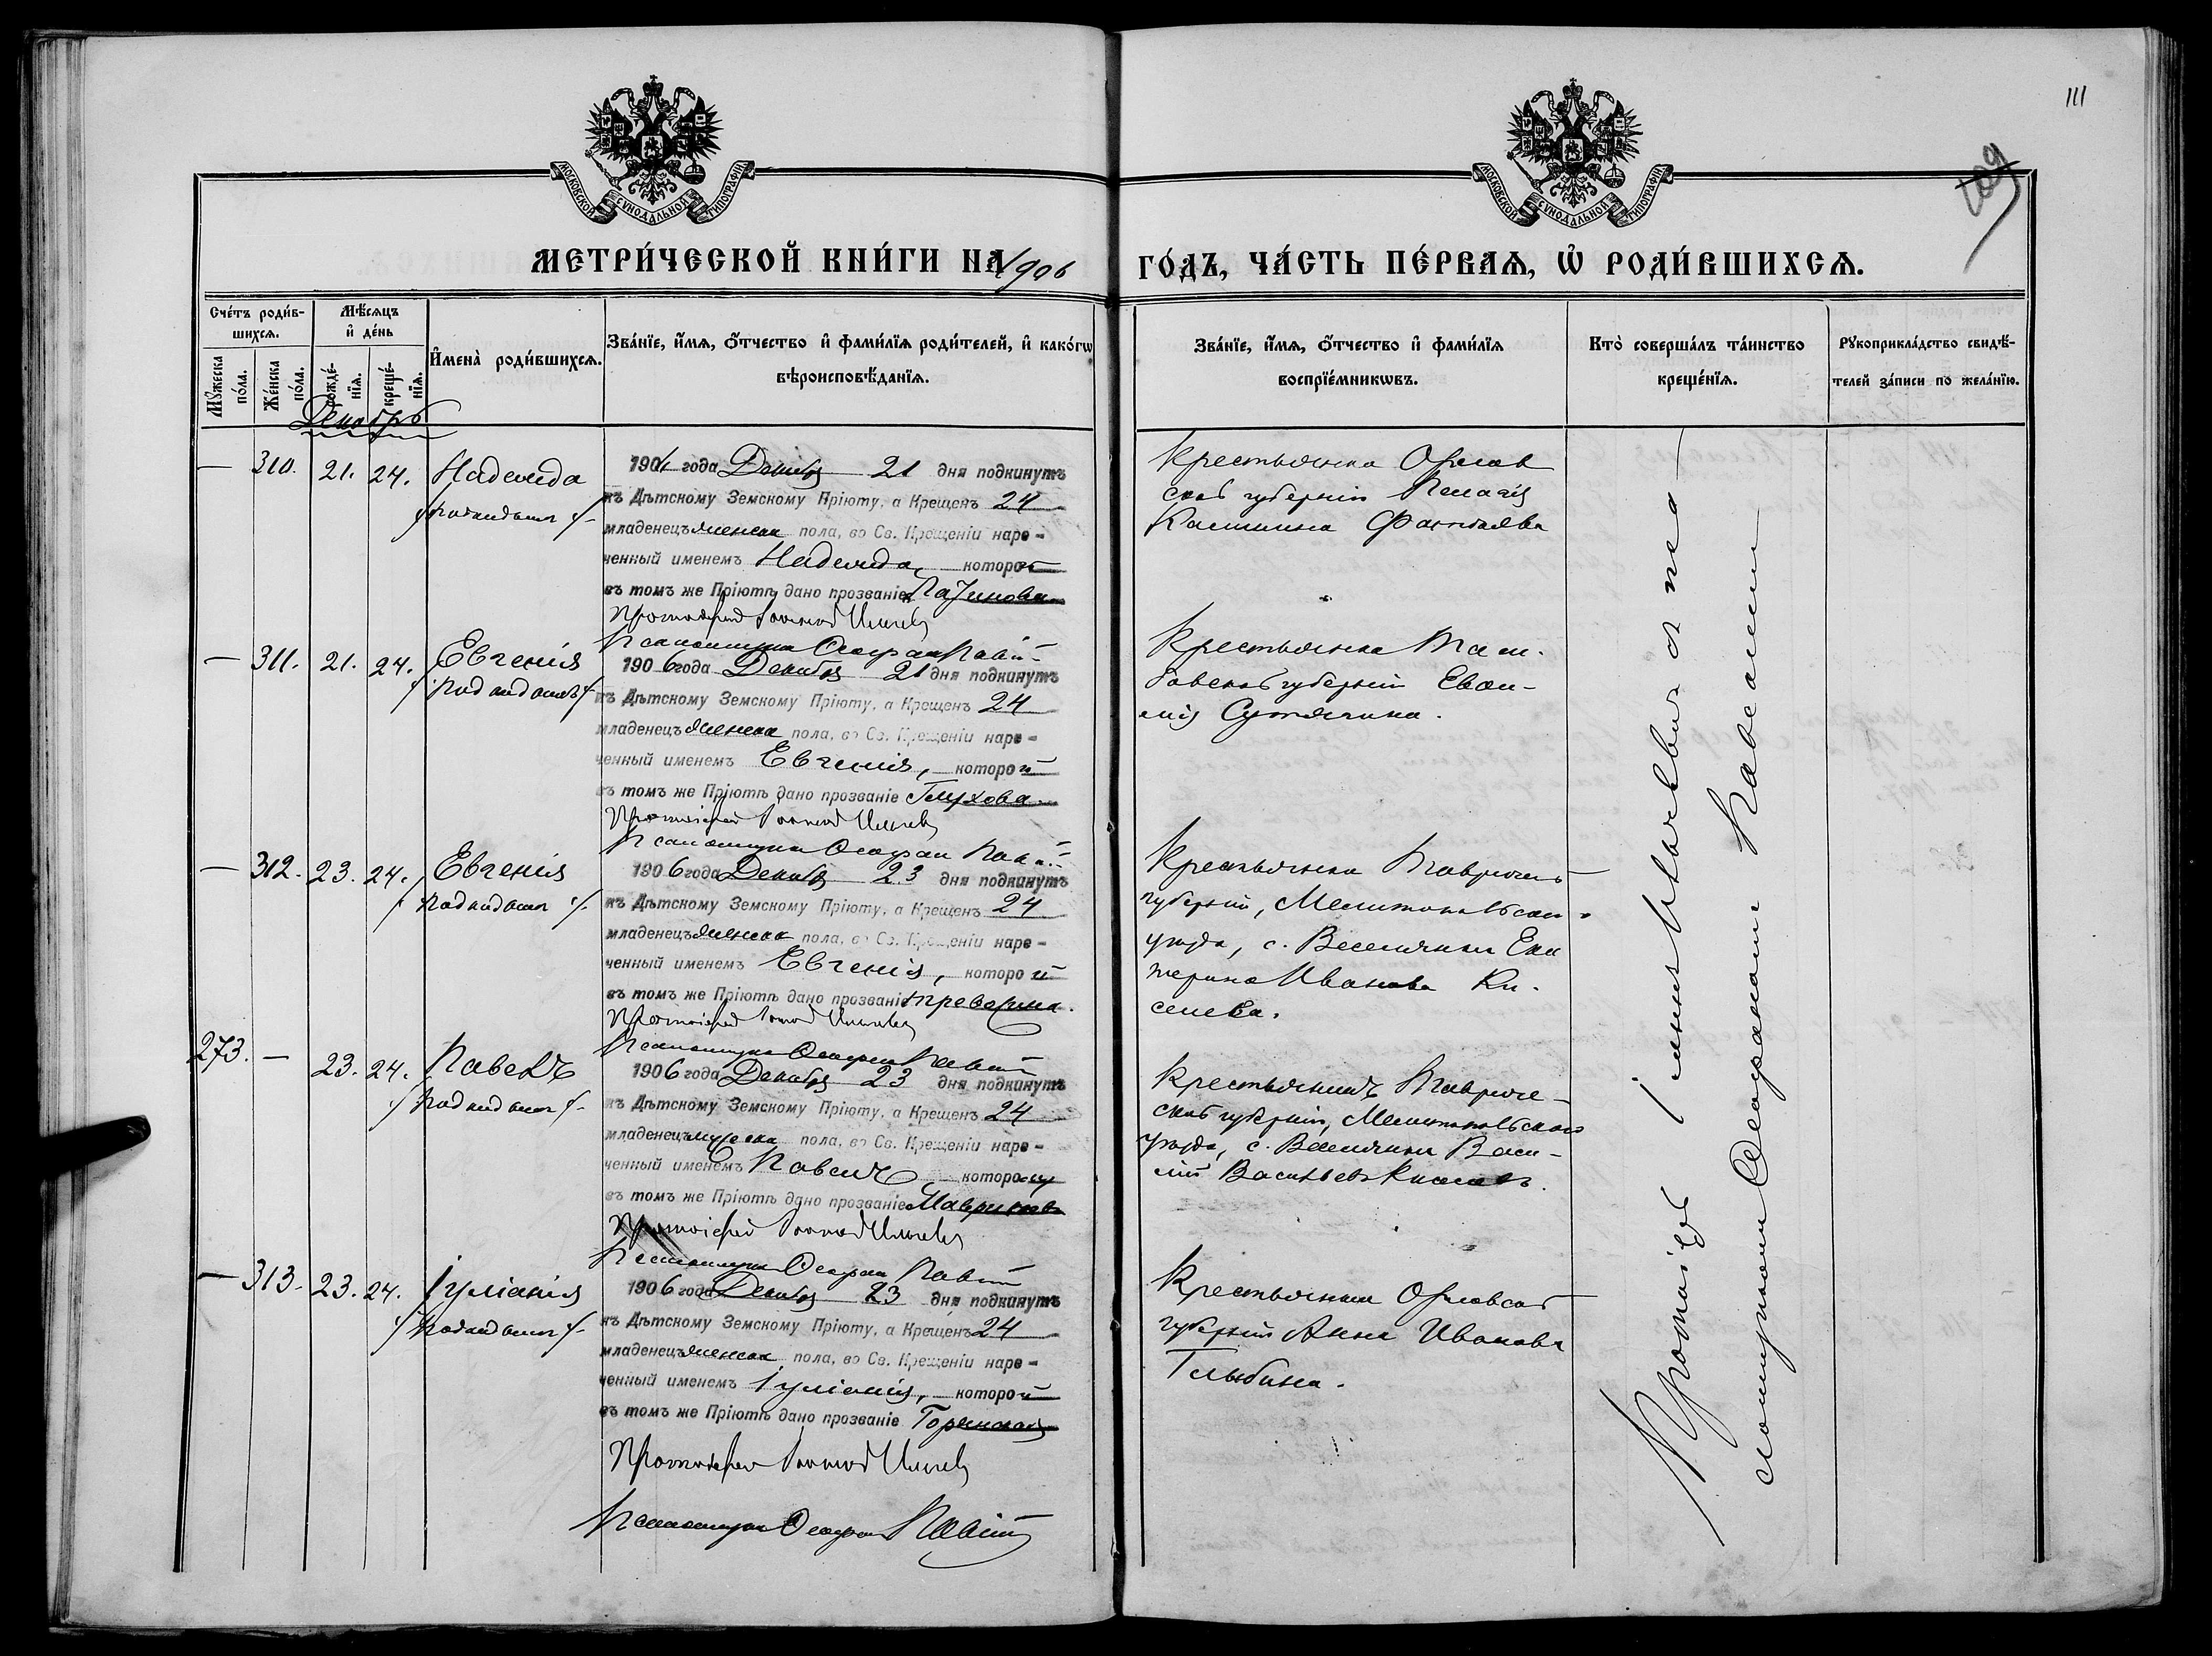 111
109
МОСКОВСКОЙ СѴНОДАЛЬНОЙ ТИПОГРАФІИ
МОСКОВСКОЙ СѴНОДАЛЬНОЙ ТИПОГРАФІИ
МЕТРИ́ЧЕСКОЙ КНИ́ГИ НА 1906 ГО́ДЪ, ЧА́СТЬ ПЕ́РВАѦ, Ѡ҆ РОДИ́ВШИХСѦ.
Сче́тъ роди́в-
шихсѧ.
Мꙋ́жеска по́ла.
Же́нска по́ла.
Мѣ́сѧцъ
и҆ де́нь
рожде́-
нїѧ.
креще́-
нїѧ.
И҆мена̀ роди́вшихсѧ.
Зва́нїе, и҆́мѧ, ѻ҆́тчество и҆ фами́лїѧ роди́телей, и҆ како́гѡ
вѣроисповѣ́данїѧ.
Зва́нїе, и҆́мѧ, ѻ҆́тчество и҆ фами́лїѧ
воспрїе́мникѡвъ.
Кто̀ соверша́лъ та́инство
креще́нїѧ.
Рꙋкоприкла́дство свидѣ́-
телей за́писи по жела́нїю.
Декабрь
— 310. 21. 24. Надежда
/подкидыш/-
1906 года Декабря 21 дня подкинутъ
къ Дѣтскому Земскому Пріюту, а Крещенъ 24
младенецъ женска пола, во Св. Крещеніи наре-
ченный именемъ Надежда, которой
въ томъ же Пріютѣ дано прозваніе
Протоіерей
Псаломщикъ Ѳеофан
Крестьянка Орлов
ской губерніи Пелагія
— 311. 21. 24. Евгенія
/подкидышъ/
1906 года Декабря 21 дня подкинутъ
къ Дѣтскому Земскому Пріюту, а Крещенъ 24
младенецъ женска пола, во Св. Крещеніи наре-
ченный именемъ Евгенія, которой
въ томъ же Пріютѣ дано прозваніе Глухова
Протоіерей
Псаломщикъ Ѳеофан
Крестьянка Там-
бовской губерніи Евѳи-
мія Сутягина.
— 312. 23. 24. Евгенія
подкидыш /-
1906 года Декабря 23 дня подкинутъ
къ Дѣтскому Земскому Пріюту, а Крещенъ 24
младенецъ женска пола, во Св. Крещеніи наре-
ченный именемъ Евгенія, которой
въ томъ же Пріютѣ дано прозваніе
Протоіерей
Псаломщикъ Ѳеофан
Крестьянка Тавриче-
губерніи, Мелитопольскаго
уѣзда, с. Веселянки Ека
терина Иванова Ки-
селева.
273. — 23. 24. Павелъ
/подкидыш/-
1906 года Декабря 23 дня подкинутъ
къ Дѣтскому Земскому Пріюту, а Крещенъ 24
младенецъ мужеска пола, во Св. Крещеніи наре-
ченный именемъ Павелъ которому
въ томъ же Пріютѣ дано прозваніе Мавриковъ
Протоіерей
Псаломщикъ Ѳеофан
Крестьянинъ Тавриче-
ской губерніи, Мелитопольскаго
уѣзда, с. Веселянки Васи-
лій Васильевъ Киселевъ.
— 313. 23. 24. Іуліанія
/подкидыш/-
1906 года Декабря 23 дня подкинутъ
къ Дѣтскому Земскому Пріюту, а Крещенъ 24
младенецъ женска пола, во Св. Крещеніи наре-
ченный именемъ Іуліанія, которой
въ томъ же Пріютѣ дано прозваніе Горинская
Протоіерей
Псаломщикъ Ѳеофан
Крестьянка Орловской
губерніи Анна Иванова
Глыбина.
Протоіерей